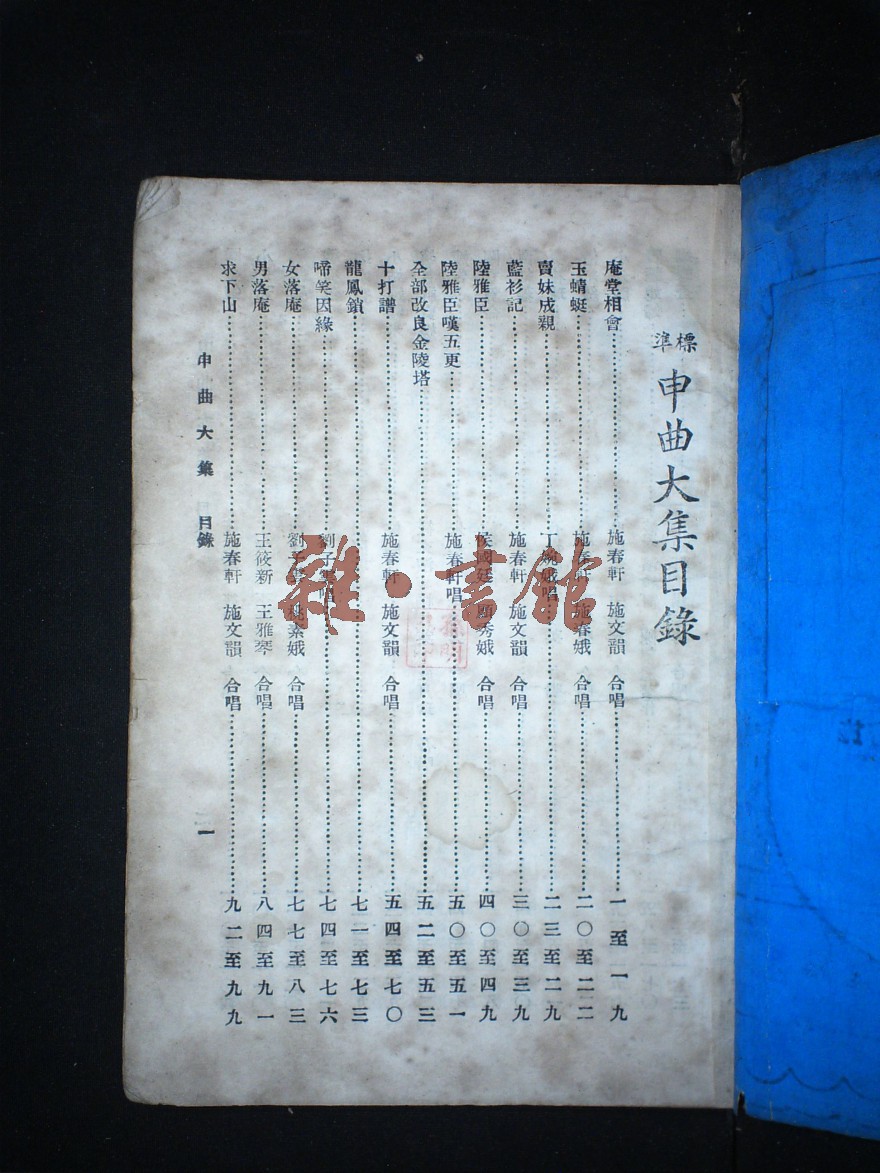 標準
申曲大集目錄
庵堂相會 施春軒 施文韻 合唱 一至一九
玉蜻蜓 施春軒 施春娥 合唱 二〇至二二
賣妹成親 丁婉娥唱 二三至二九
藍衫記 施春軒 施文韻 合唱 三〇至三九
陸雅臣 國廷 秀娥 合唱 四〇至四九
陸雅臣嘆五更 施春軒唱 五〇至五一
全部改良金陵塔 五二至五三
十打譜 施春軒 施文韻 合唱 五四至七〇
龍鳳鎖 七一至七三
啼笑因緣 劉子雲唱 七四至七六
女落庵 劉子雲 姚素娥 合唱 七七至八三
男落庵 王筱新 王雅琴 合唱 八四至九一
求下山 施春軒 施文韻 合唱 九二至九九
申曲大集 目錄
一
雜·書館